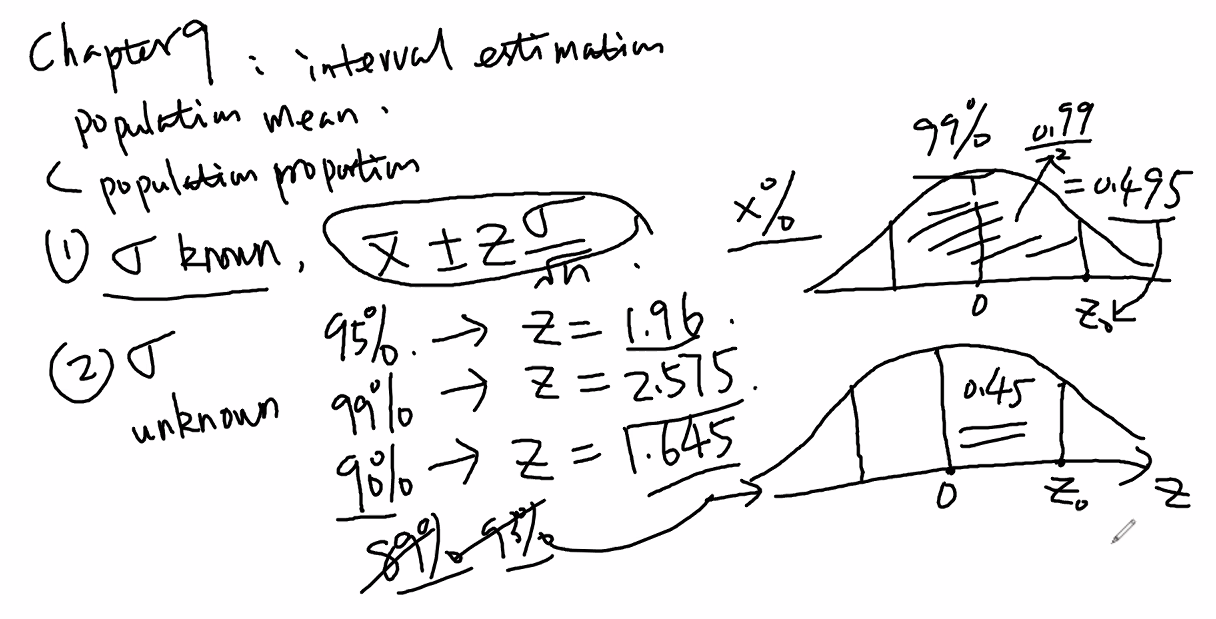 Chapter 9 : interval estimation
population mean .
< population proportion
(1) σ known , x̄ ± z σ/√n .
95% . → z = 1.96 .
99% → z = 2.575 .
90% → z = 1.645
89% . 93%
(2) σ
unknown
x%
99%
0.99/2
= 0.495
0 z₀
0.45
0 z₀ z